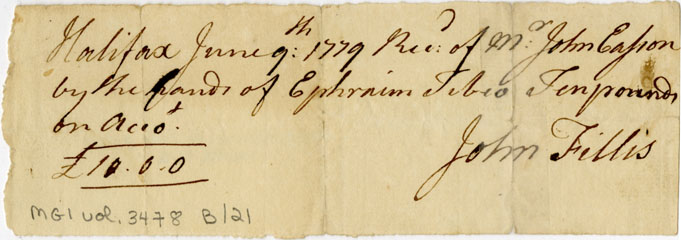 Halifax June 9th: 1779 Recd: of Mr: John Easson
by the hands of Ephraim Tibeo Ten pounds
on Accot.
£10.0.0
John Fillis
MG1 vol. 3478 B/21